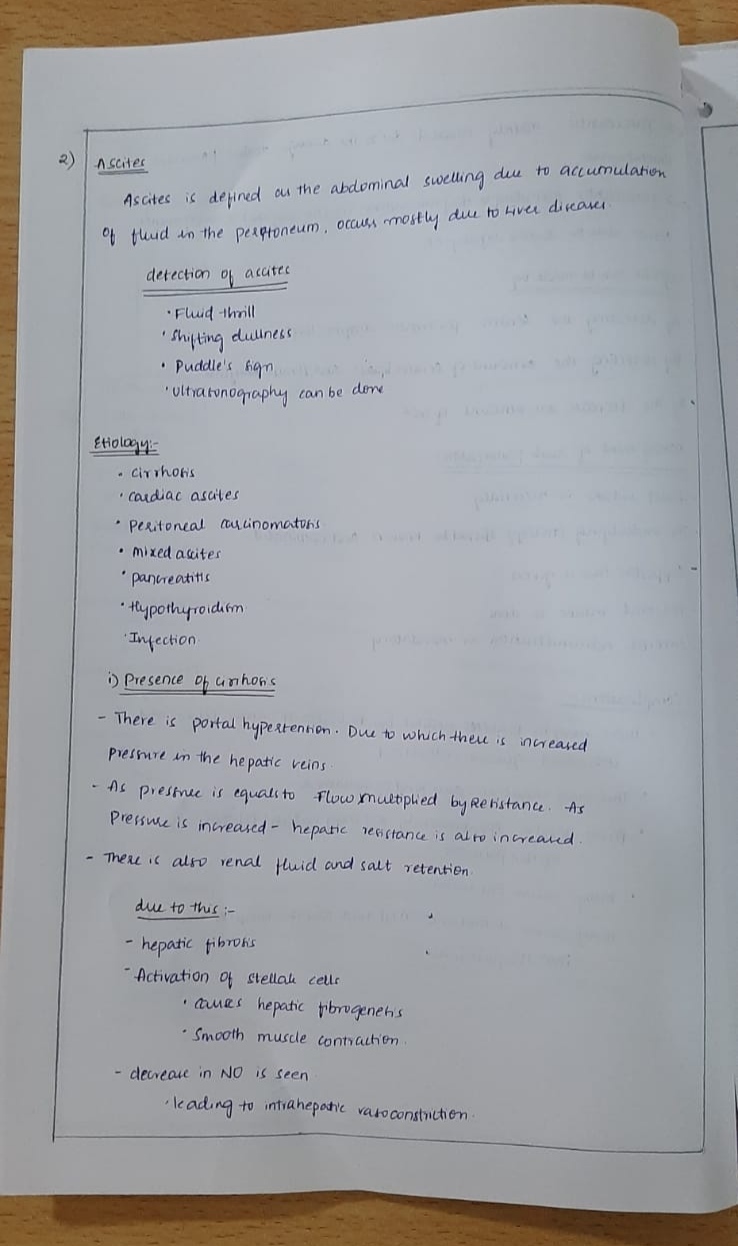 2) Ascites
Ascites is defined as the abdominal swelling due to accumulation
of fluid in the peritoneum, occurs mostly due to Liver diseases.
detection of ascites
• Fluid thrill
• Shifting dullness
• Puddle's sign
• Ultrasonography can be done
Etiology:-
• cirrhosis
• cardiac ascites
• Peritoneal carcinomatosis
• mixed ascites
• pancreatitis
• Hypothyroidism
• Infection.
i) Presence of cirrhosis
- There is portal hypertension. Due to which there is increased
pressure in the hepatic veins.
- As pressure is equals to Flow multiplied by Resistance. As
Pressure is increased - hepatic resistance is also increased.
- There is also renal fluid and salt retention.
due to this :-
- hepatic fibrosis
- Activation of stellate cells
• causes hepatic fibrogenesis
• Smooth muscle contraction.
- decrease in NO is seen
• leading to intrahepatic vasoconstriction.